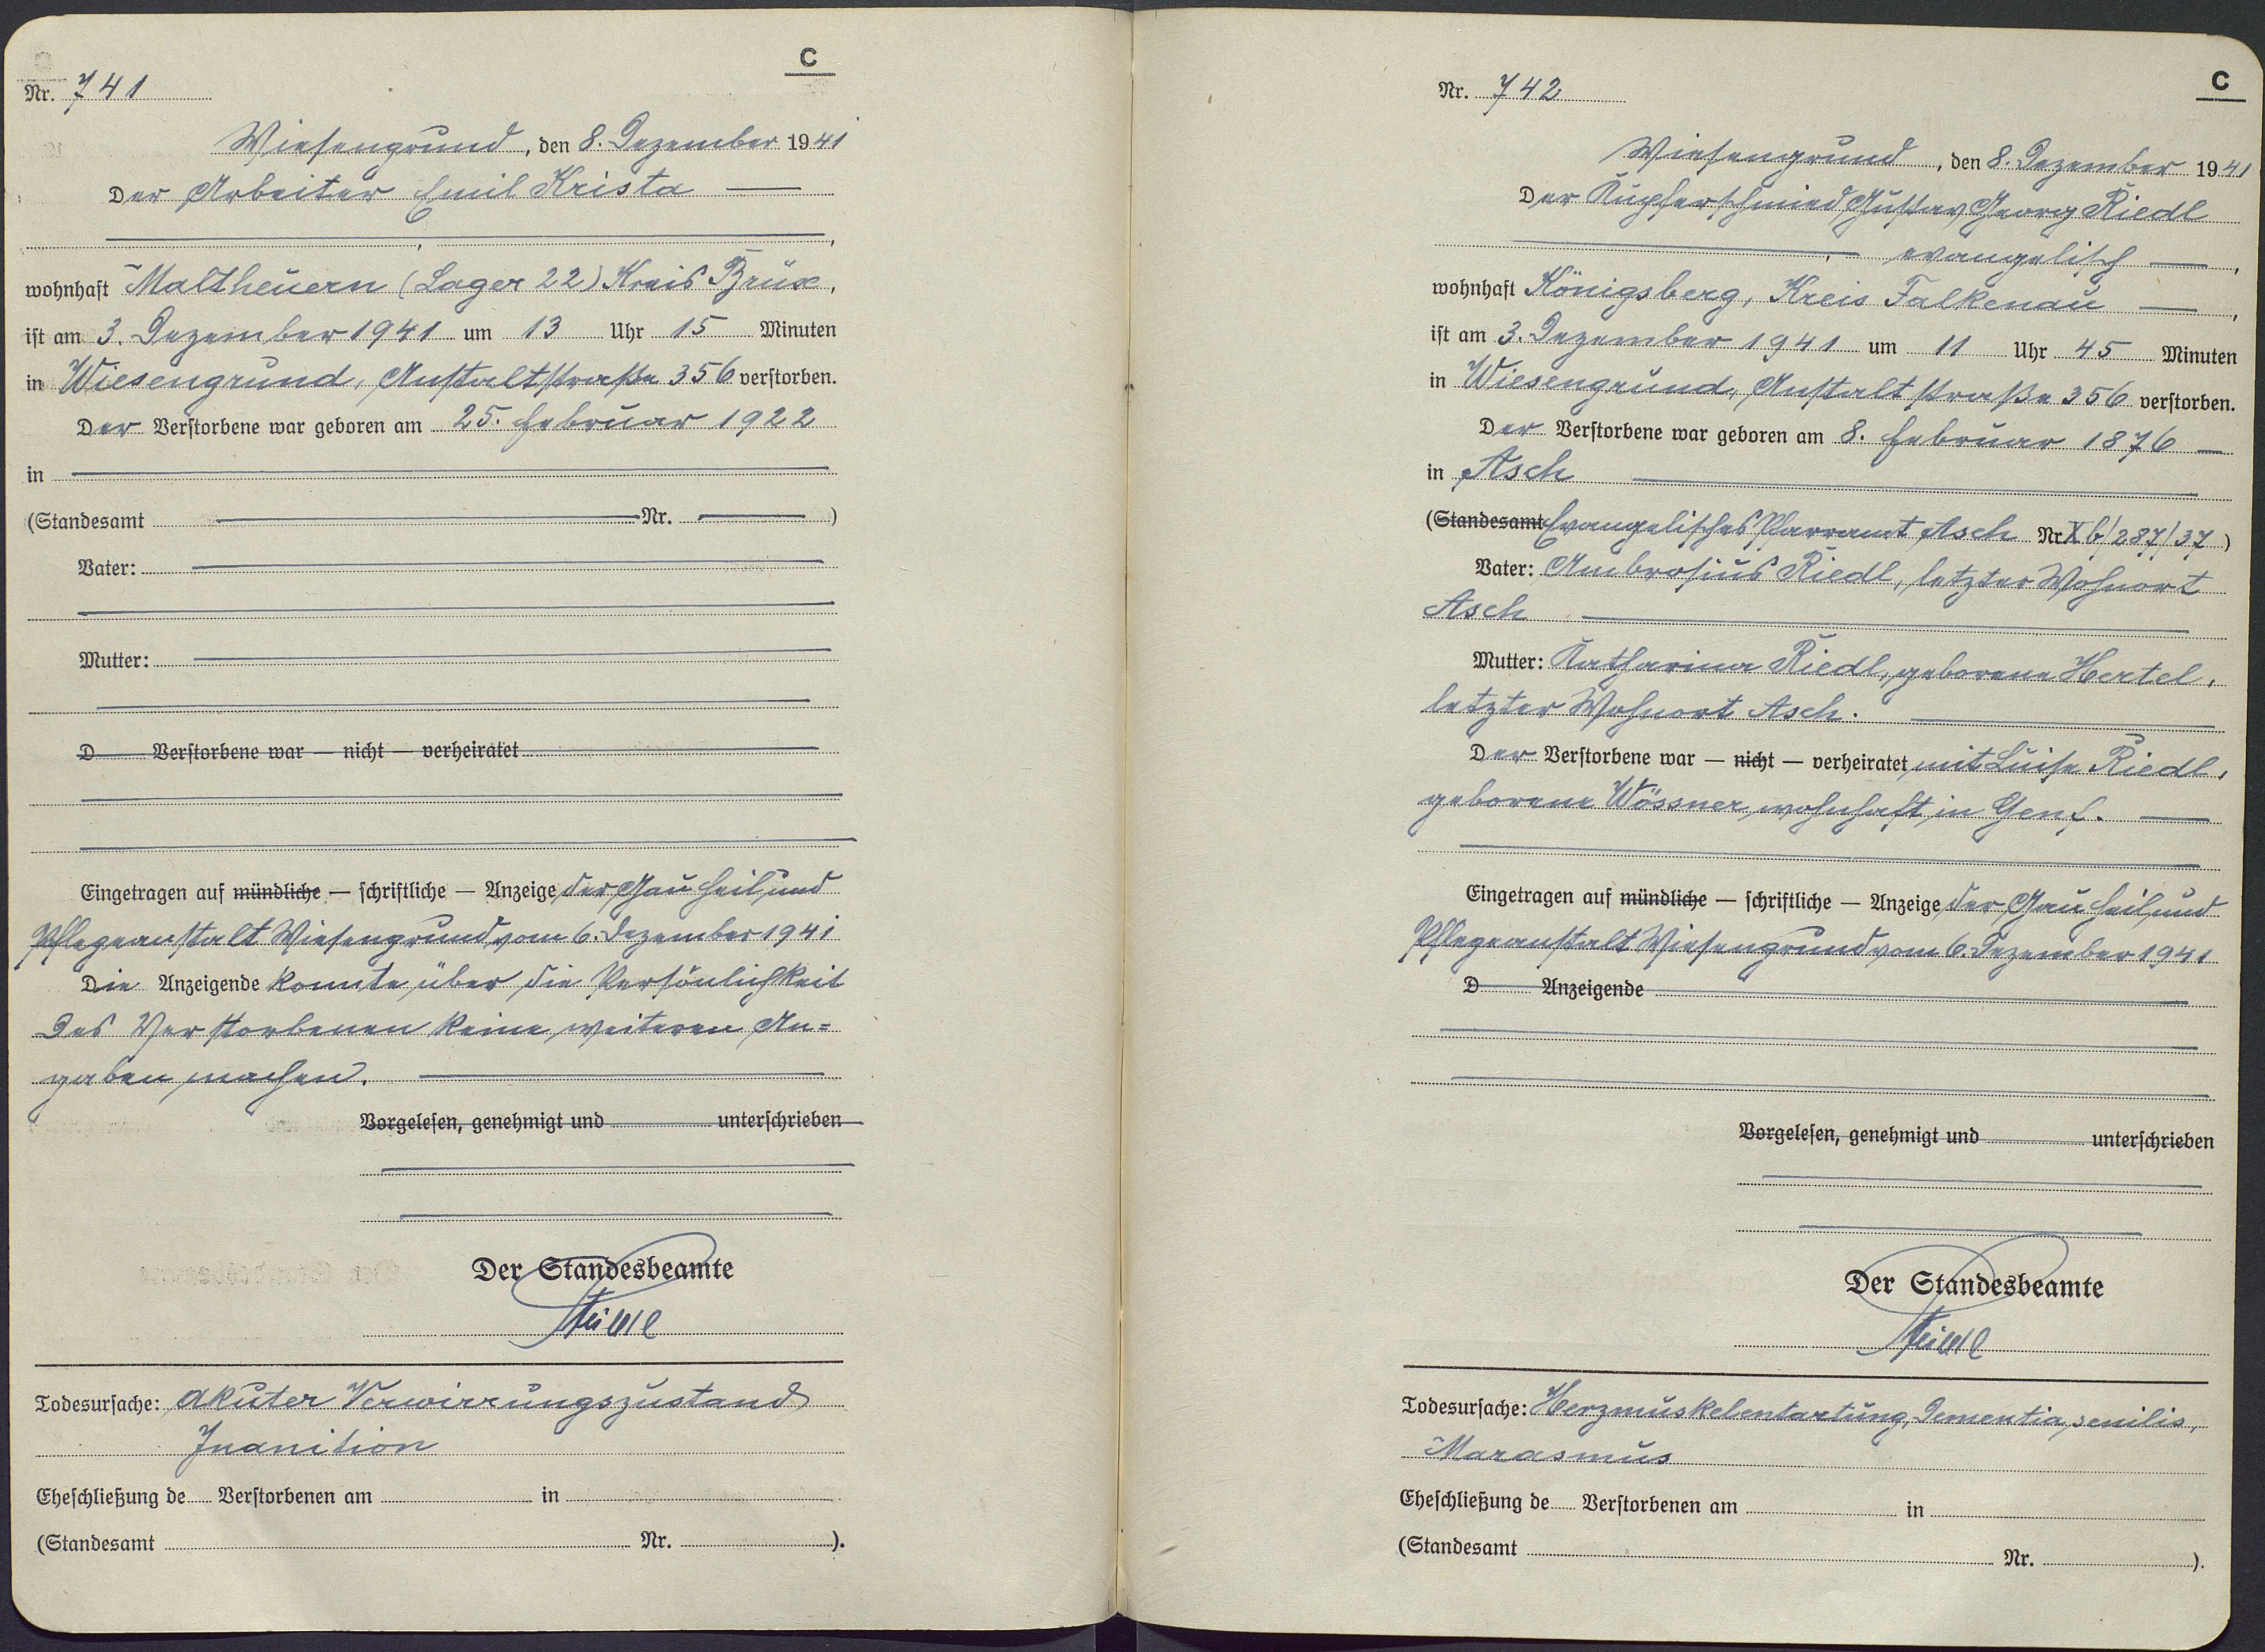 C
Nr. 741
Wiesengrund, den 8. Dezember 1941
Der Arbeiter Emil Krista
wohnhaft Maltheuern (Lager 22) Kreis Brüx,
ist am 3. Dezember 1941 um 13 Uhr 15 Minuten
in Wiesengrund, Anstaltstraße 356 verstorben.
Der Verstorbene war geboren am 25. Februar 1922
in
(Standesamt Nr. )
Vater:
Mutter:
D Verstorbene war — nicht — verheiratet
Eingetragen auf mündliche — schriftliche — Anzeige der Gau Heil und
Pflegeanstalt Wiesengrund vom 6. Dezember 1941
Die Anzeigende konnte über die Persönlichkeit
des Verstorbenen keine weiteren An=
gaben machen.
Vorgelesen, genehmigt und unterschrieben
Der Standesbeamte
Todesursache: akuter Verwirrungszustand
Inanition
Eheschließung de Verstorbenen am in
(Standesamt Nr. ).
C
Nr. 742
Wiesengrund, den 8. Dezember 1941
Der Kupferschmied Gustav Georg Riedl
, evangelisch ,
wohnhaft Königsberg, Kreis Falkenau ,
ist am 3. Dezember 1941 um 11 Uhr 45 Minuten
in Wiesengrund, Anstaltstraße 356 verstorben.
Der Verstorbene war geboren am 8. Februar 1876
in Asch
(Standesamt Evangelisches Pfarramt Asch Nr. X b/287/37)
Vater: Ambrosius Riedl, letzter Wohnort
Asch
Mutter: Katharina Riedl, geborene Hertel,
letzter Wohnort Asch.
Der Verstorbene war — nicht — verheiratet mit Luise Riedl,
geborene Wössner, wohnhaft in Genf.
Eingetragen auf mündliche — schriftliche — Anzeige der Gau Heil und
Pflegeanstalt Wiesengrund vom 6. Dezember 1941
D Anzeigende
Vorgelesen, genehmigt und unterschrieben
Der Standesbeamte
Todesursache: Herzmuskelentartung, Dementia senilis,
Marasmus
Eheschließung de Verstorbenen am in
(Standesamt Nr. ).